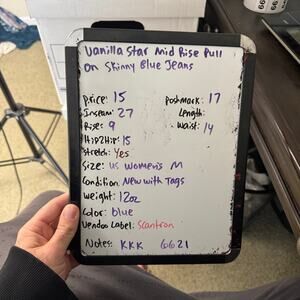 Vanilla Star Mid Rise Pull
On Skinny Blue Jeans
Price: 15
Poshmark: 17
Inseam: 27
Length:
Rise: 9
Waist: 14
Hip2Hip: 15
Stretch: Yes
Size: US Women's M
Condition: New with Tags
Weight: 12oz
Color: blue
Vendoo Label: Scantron
Notes: KKK 6621